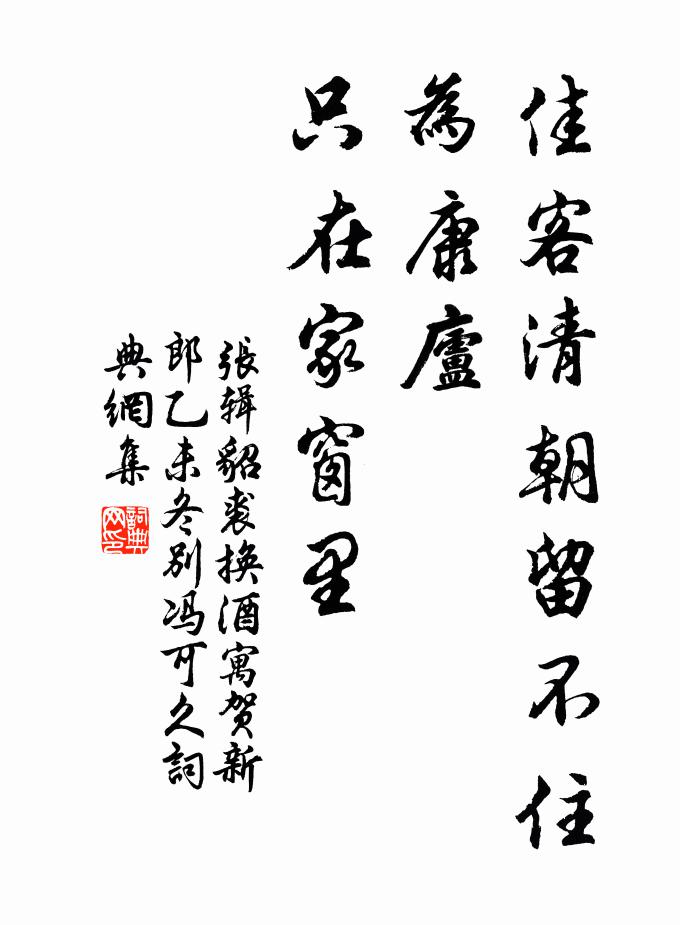 佳客清朝留不住
為康廬
只在家窗里
張辑貂裘换酒寓贺新
郎乙未冬别冯可久詞
典網集
詞典
网印